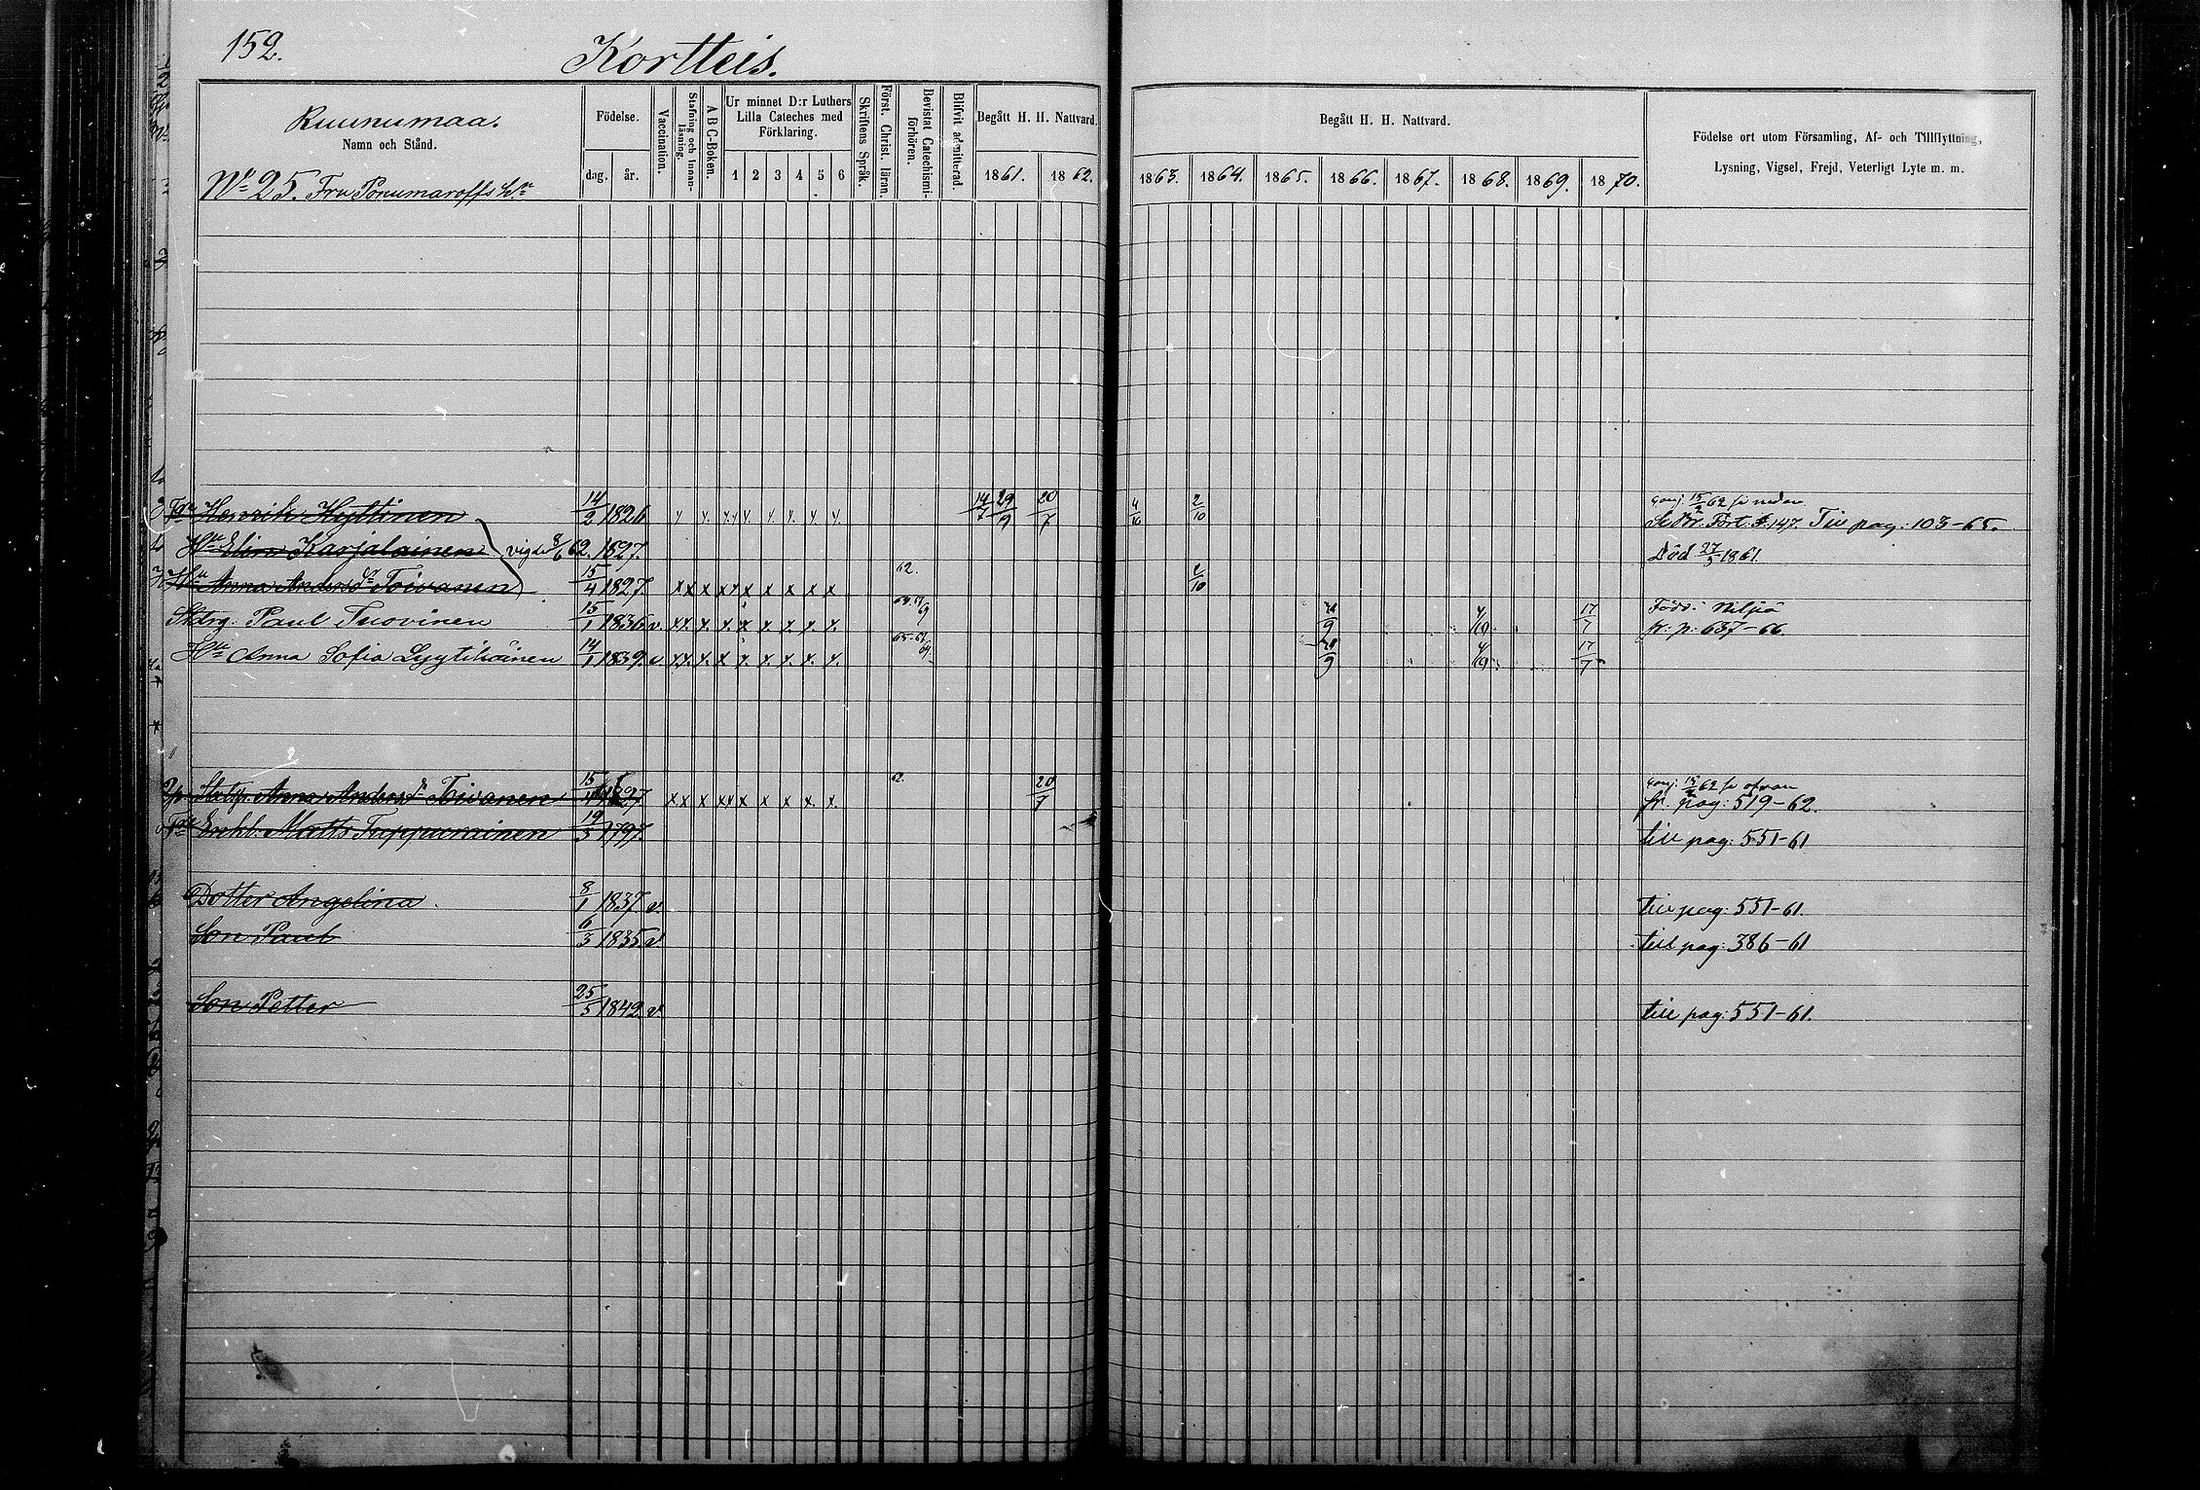 152.
Kortteis.
Ruunumaa.
Namn och Stånd.
No 25. Fru Ponumaroffs
Födelse.
dag. år.
Vaccination.
Stafning och Innanläsning.
A B C-Boken.
Ur minnet D:r Luthers Lilla Cateches med Förklaring.
1 2 3 4 5 6
Skriftens Språk.
Först. Christ. läran.
Bevistat Catechismi-förhören.
Blifvit admitterad.
Begått H. H. Nattvard.
1861. 1862.
Begått H. H. Nattvard.
1863. 1864. 1865. 1866. 1867. 1868. 1869. 1870.
Födelse ort utom Församling, Af- och Tillflyttning,
Lysning, Vigsel, Frejd, Veterligt Lyte m. m.
Henrik Hyttinen 14/2 1826 14/7 29/9 20/7 4/10 2/10 15/2 62 nedan
147. Till pag: 103-65.
Hu Elin Karjalainen vigde 8/6 62. 1827. Död 27/3 1861.
Hu Anna Andersdr Toivanen 15/4 1827. x x x x x x x x x x 62. 2/10
Paul Tuovinen 15/1 1836 v. 4/10 17/7 Född: Nilsiä
fr. p: 637-66.
Hu Anna Sofia Lyytikäinen 14/1 1839. v 4/10 17/7
Anna Andersdr Toivanen 15/4 1827 x x x x x x x x x x 2. 20/7 62 ofvan
fr. pag: 519-62.
Enkl. Matts Tuppurainen 19/3 1797. till pag: 551-61
Dotter Angelina 8/1 1837 v. till pag: 551-61.
Son Paul 6/3 1835 v till pag: 386-61
Son Petter 25/5 1842 v till pag: 551-61.